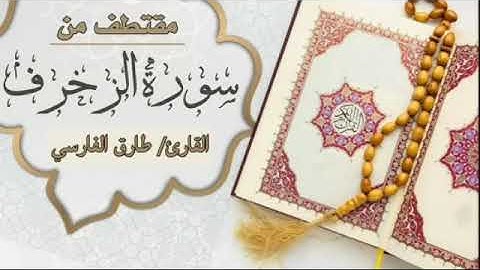 مقتطف من
سورة الزخرف
القارئ/ طارق الفارسي